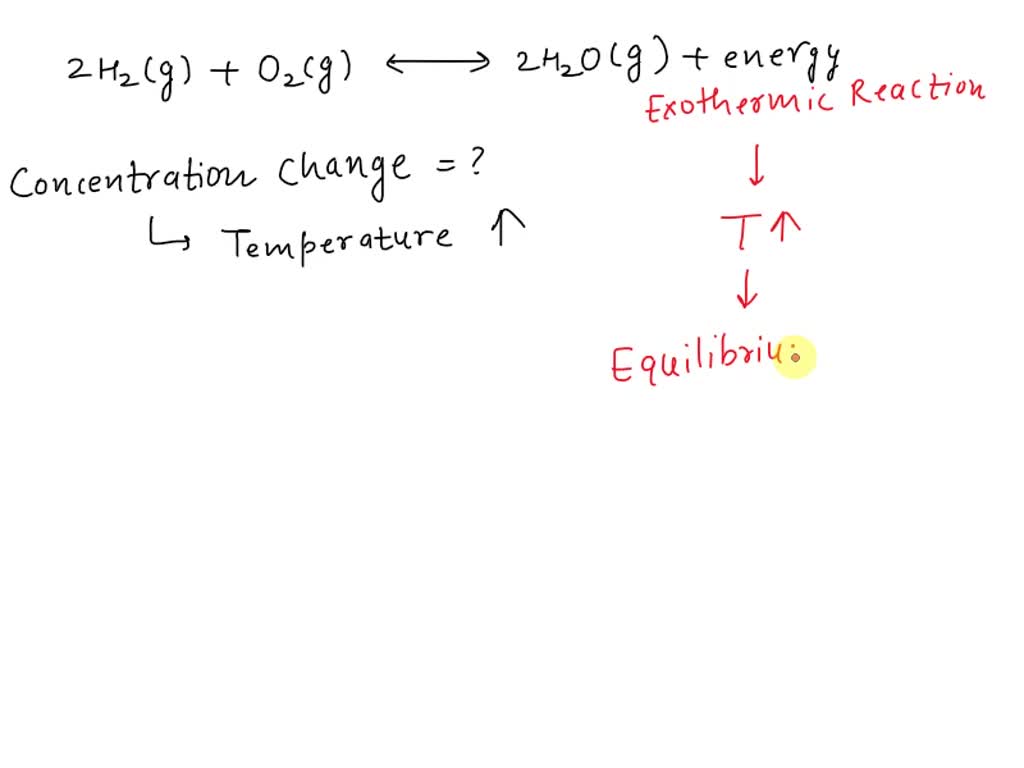 2H₂(g) + O₂(g) ⟷ 2H₂O(g) + energy
Exothermic Reaction
↓
Concentration change = ?
↳ Temperature ↑
T↑
↓
Equilibriu